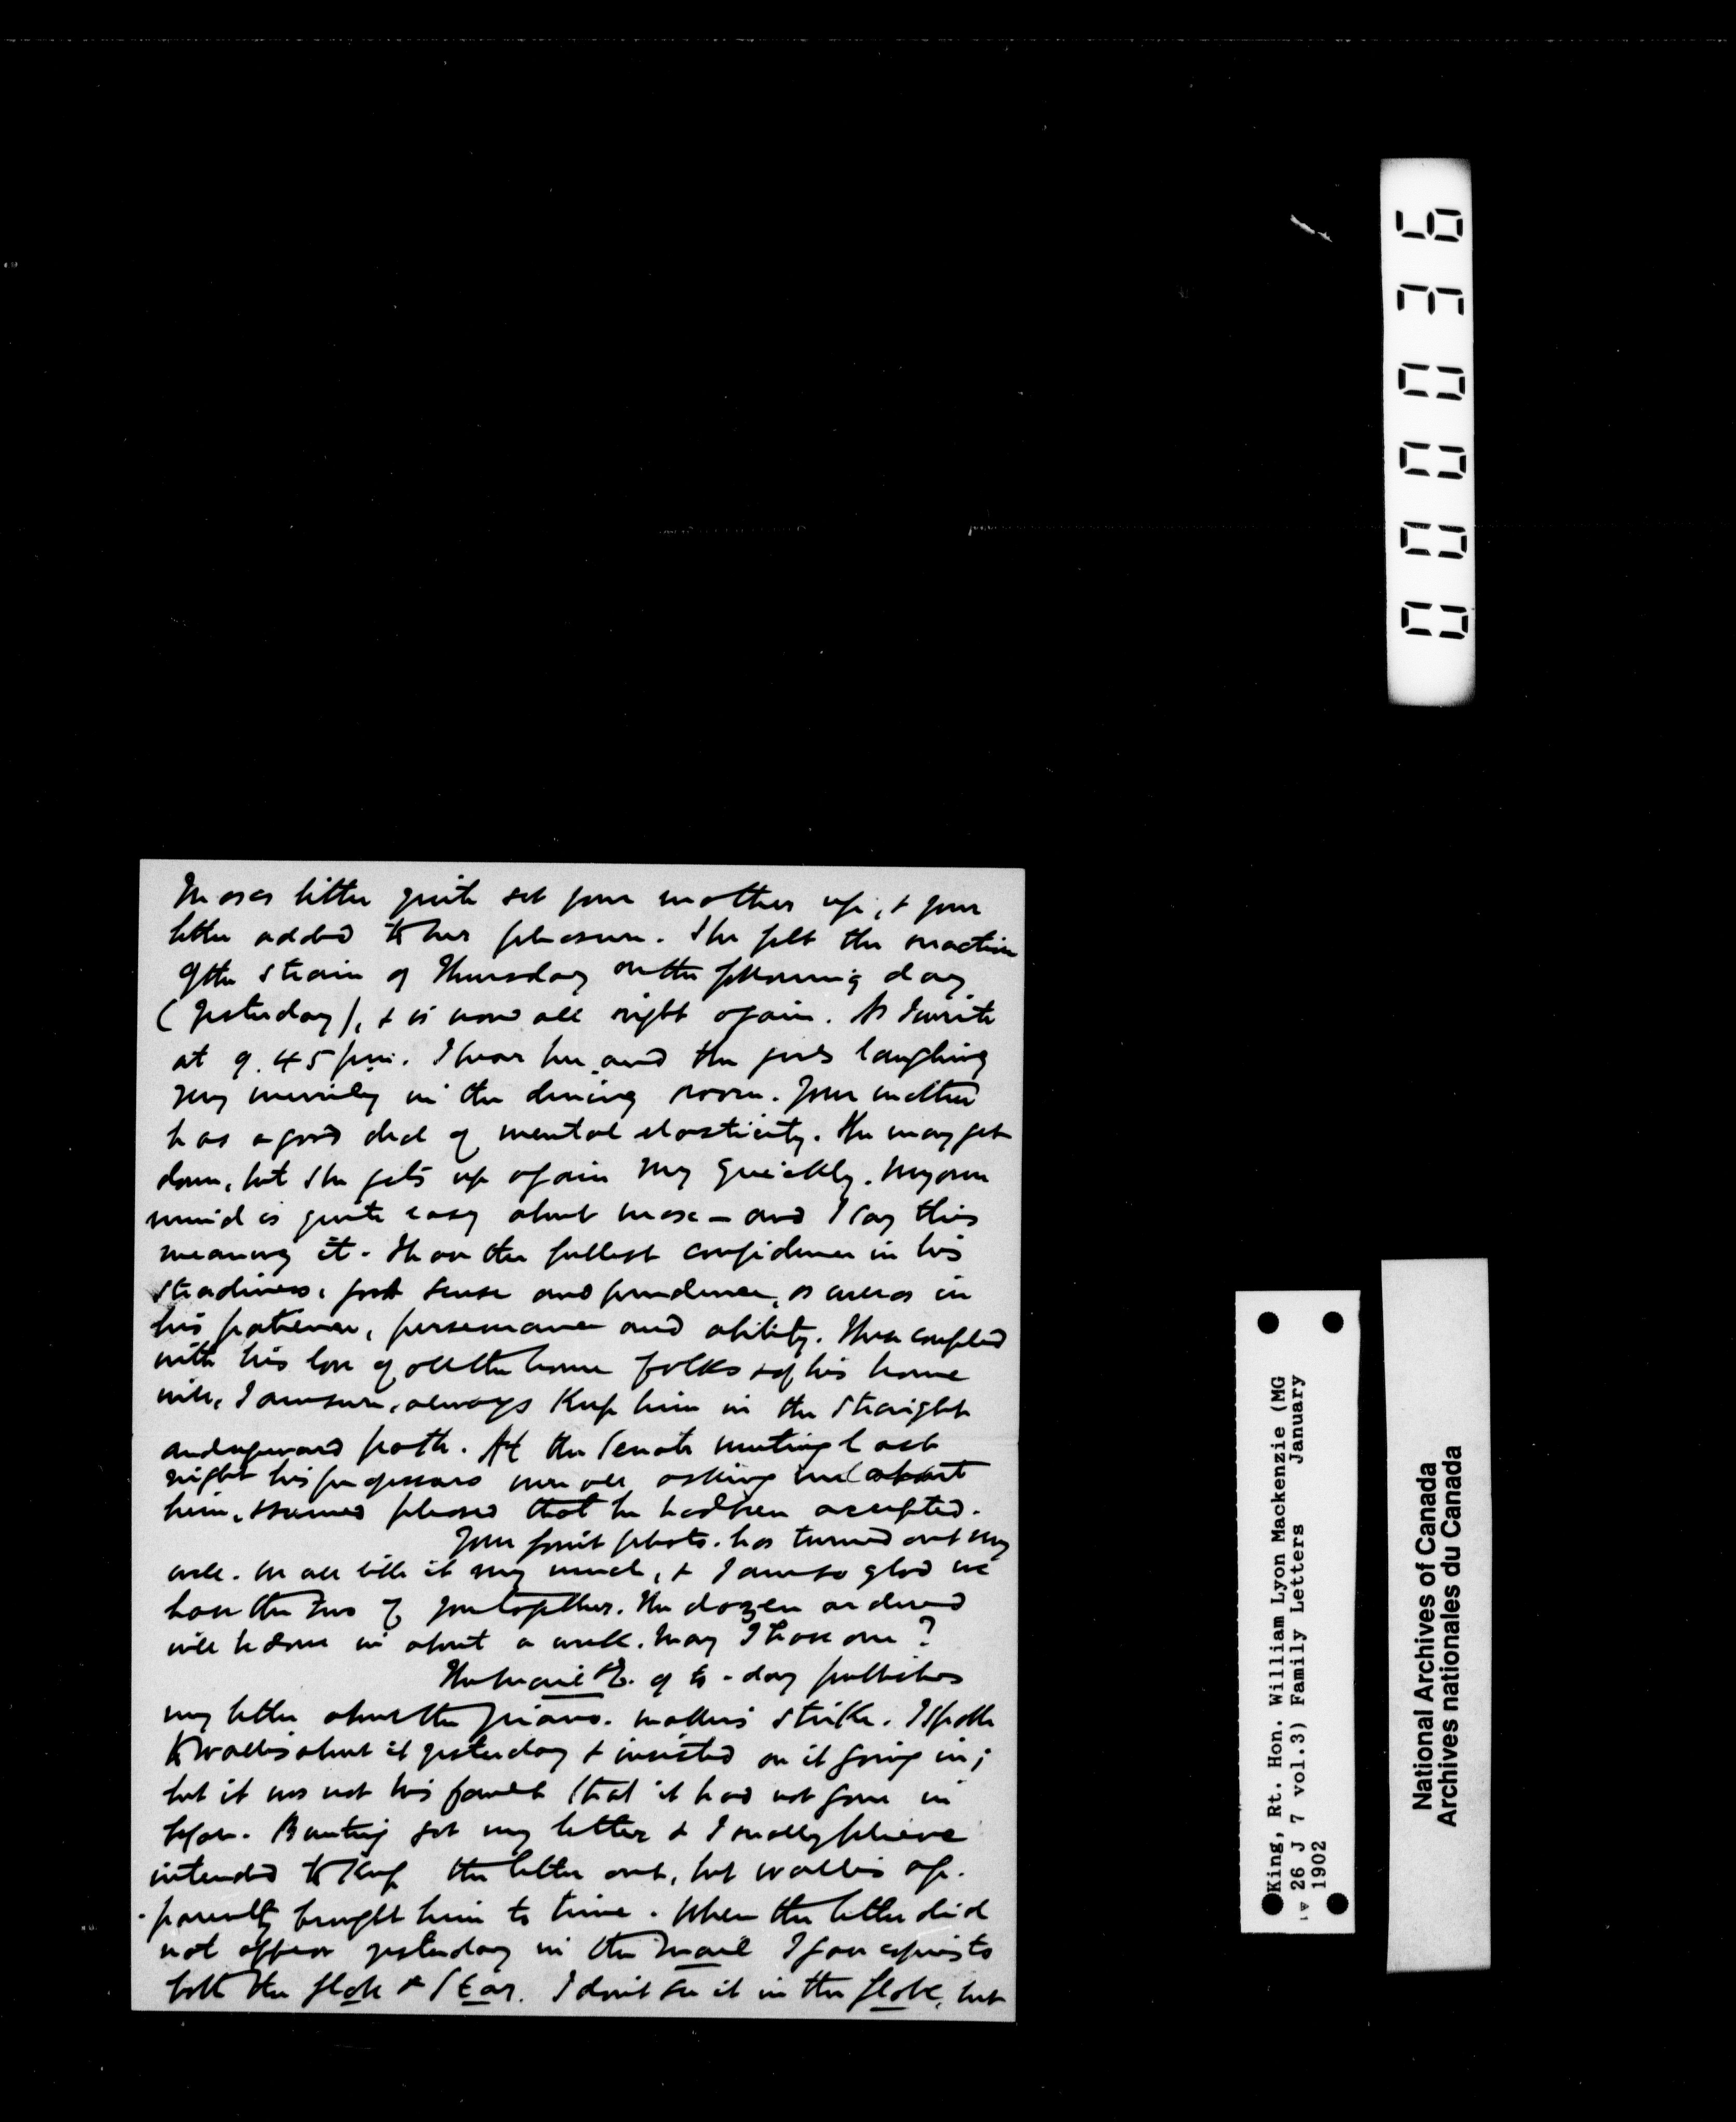 Moses letter quite set your mother up, & your
letter added to her pleasure. She felt the reaction
of the strain of Thursday on the following day
(yesterday), & is now all right again. As I write
at 9.45 p.m. I hear her and the girls laughing
very merrily in the dining room. Your mother
has a good deal of mental elasticity. She may get
down, but she gets up again very quickly. My own
mind is quite easy about Mose – and I say this
meaning it. I have the fullest confidence in his
steadiness, good sense and prudence, as well as in
his patience, perseverance and ability. These coupled
with his love of all the home folks & of his home
will, I am sure, always keep him in the straight
and upward path. At the Senate meeting last
night his professors were all asking me about
him, & seemed pleased that he had been accepted.
Your joint photo. has turned out very
well. We all like it very much, & I am so glad we
have the two of you together. The dozen ordered
will be done in about a week. May I have one?
The Mail & E. of to-day publishes
my letter about the piano-makers strike. I spoke
to Wallis about it yesterday & insisted on it going in;
but it was not his fault that it had not gone in
before. Bunting got my letter & I really believe
intended to keep the letter out, but Wallis ap-
-parently brought him to time. When the letter did
not appear yesterday in the Mail I gave copies to
both the Globe & Star. I don't see it in the Globe, but
000036
King, Rt. Hon. William Lyon Mackenzie (MG
26 J 7 vol.3) Family Letters January
1902
National Archives of Canada
Archives nationales du Canada